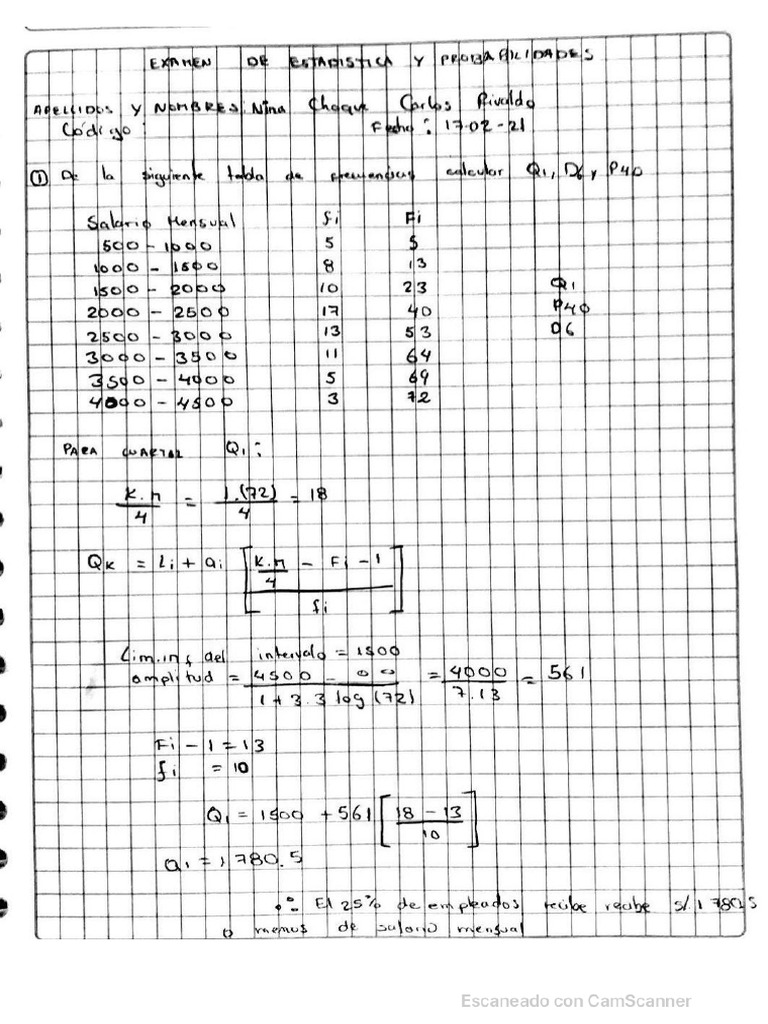 EXAMEN DE ESTADISTICA Y PROBABILIDADES
APELLIDOS Y NOMBRES: Nina Choque Carlos Rivaldo
Código : Fecha : 17-02-21
① De la siguiente tabla de frecuencias calcular Q1, D6 y P40
Salario Mensual fi Fi
500 - 1000 5 5
1000 - 1500 8 13
1500 - 2000 10 23 Q1
2000 - 2500 17 40 P40
2500 - 3000 13 53 D6
3000 - 3500 11 64
3500 - 4000 5 69
4000 - 4500 3 72
PARA CUARTAL Q1 :
K.n / 4 = 1.(72) / 4 = 18
QK = Li + ai [ (K.n / 4 - Fi - 1) / fi ]
Lim.inf del intervalo = 1500
amplitud = 4500 - 00 / 1 + 3.3 log (72) = 4000 / 7.13 = 561
Fi - 1 = 13
fi = 10
Q1 = 1500 + 561 [ 18 - 13 / 10 ]
Q1 = 1780.5
∴ El 25% de empleados recibe recibe S/. 1780.5
o menos de salario mensual
Escaneado con CamScanner